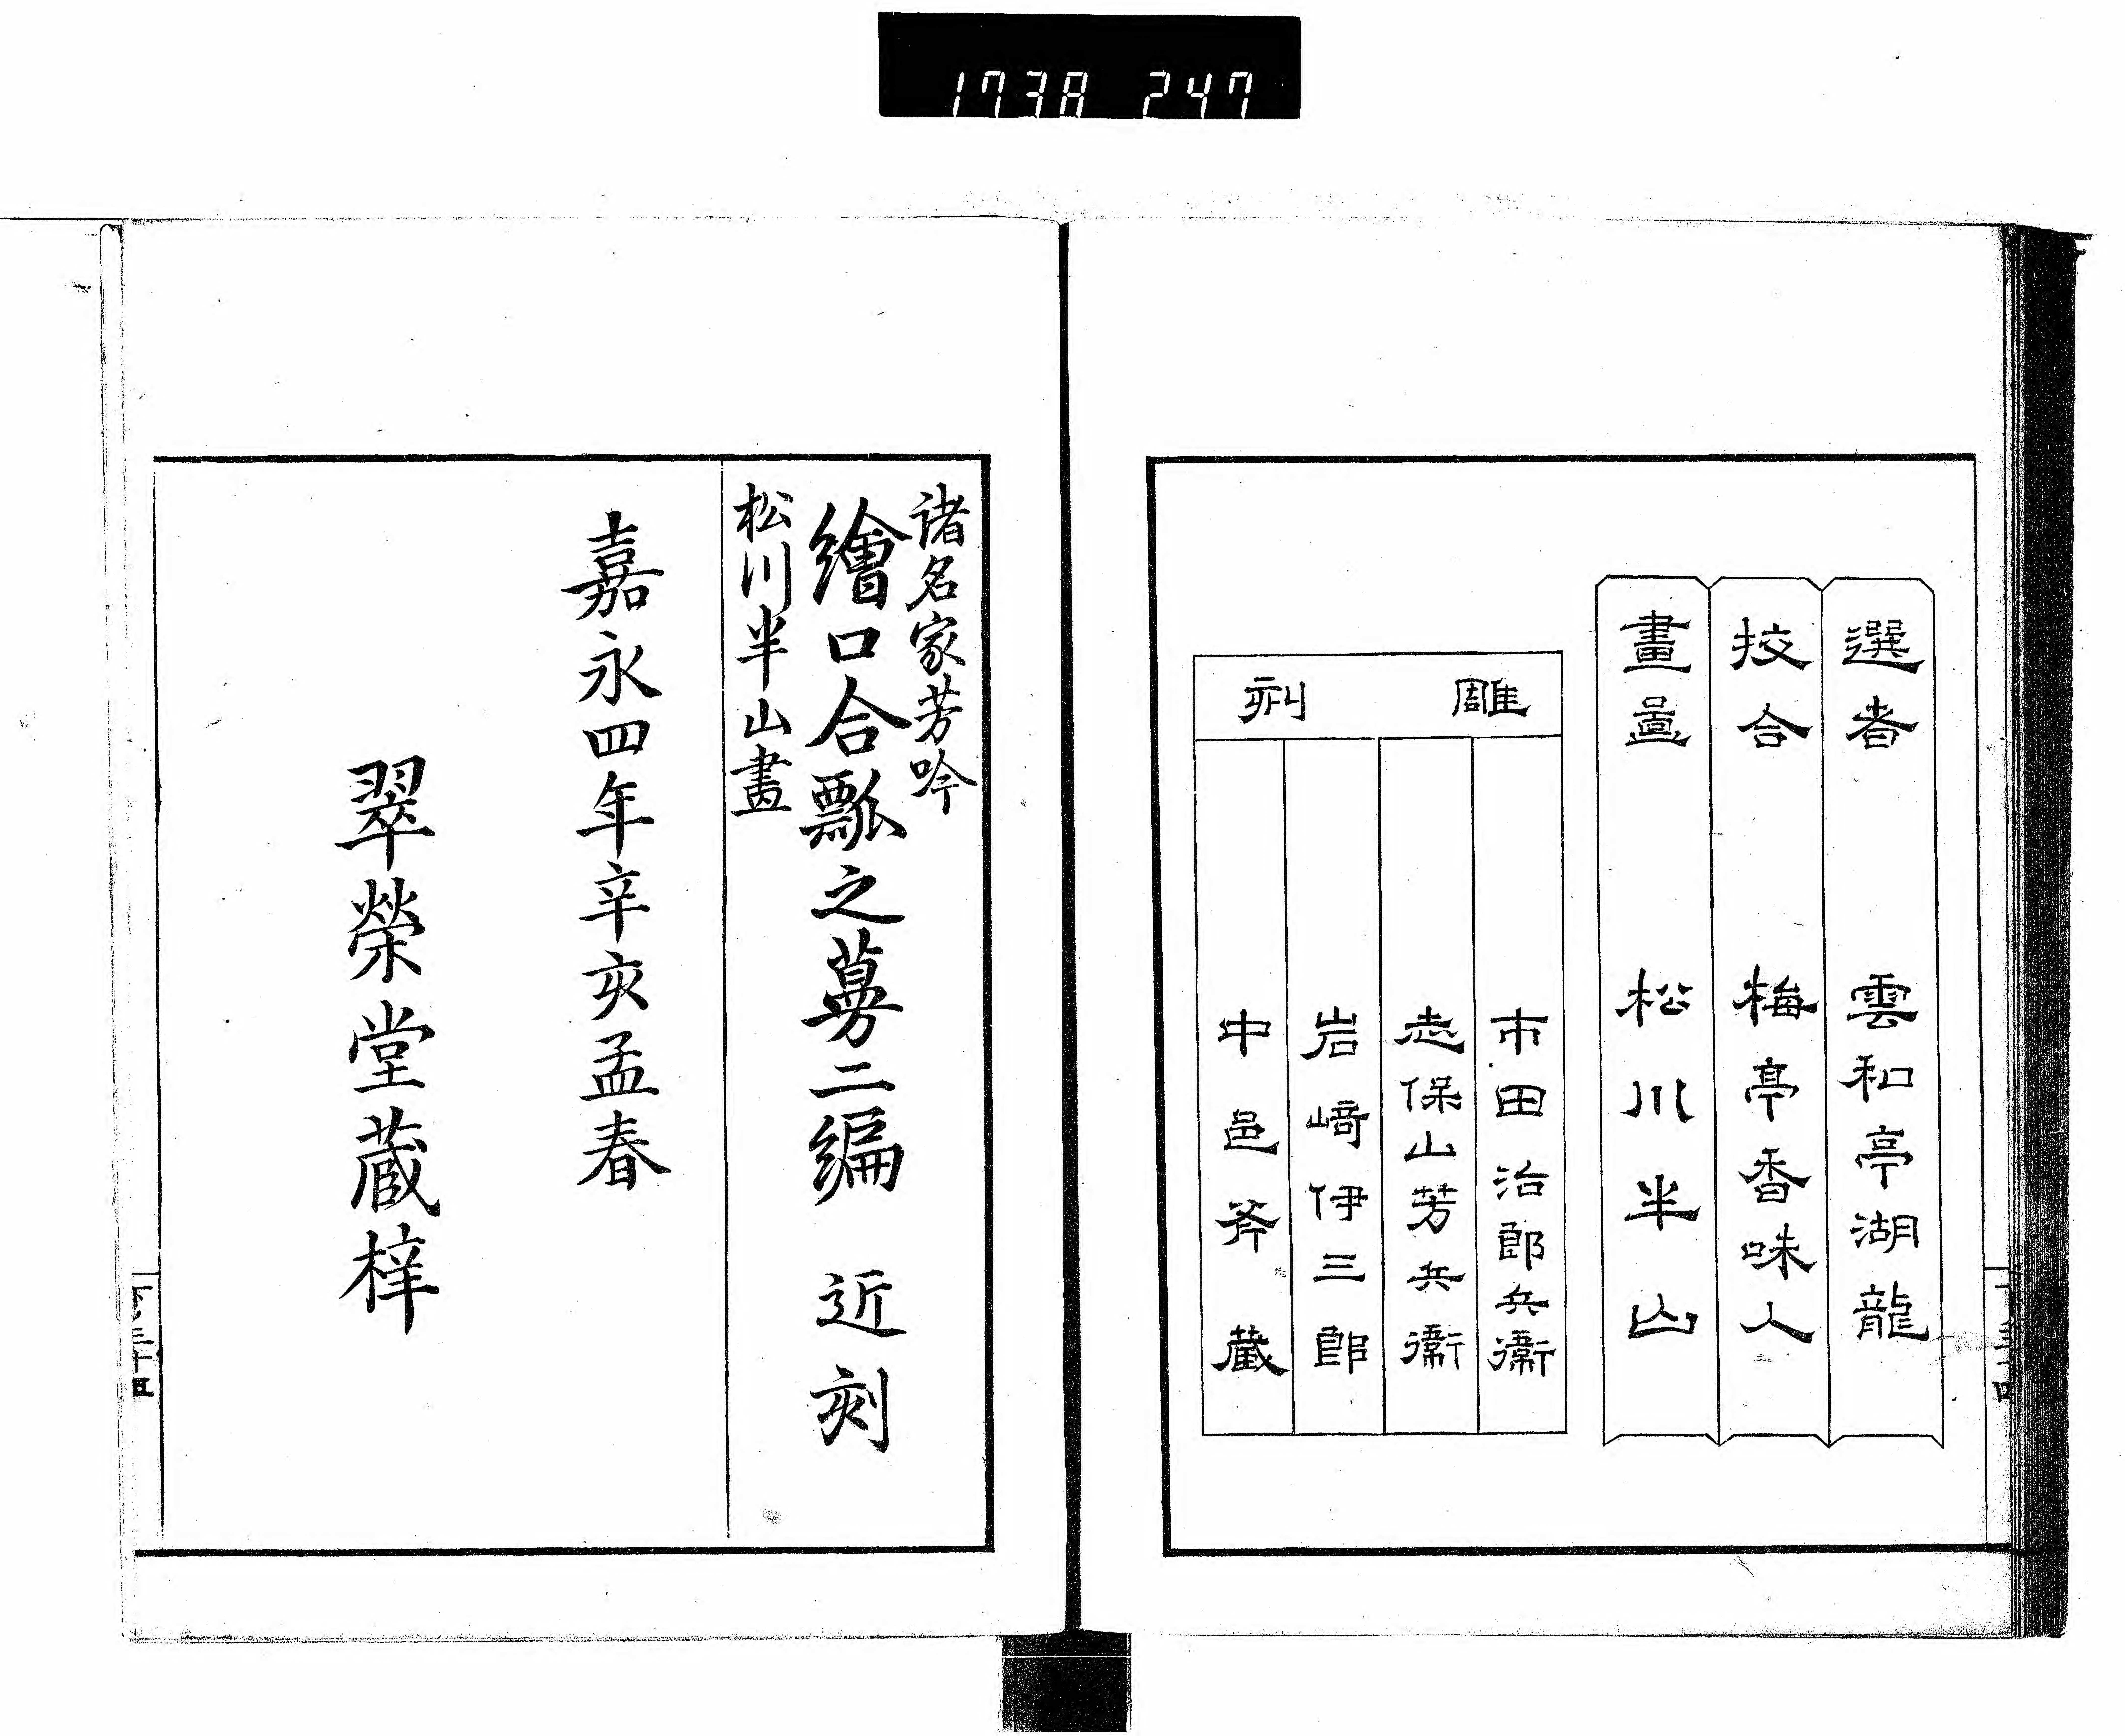 1738 247
選者 雲和亭湖龍
挍合 梅亭香味人
畫圖 松川半山
雕刻
市田治郎兵衞
志保山芳兵衞
岩﨑伊三郎
中邑斧藏
諸名家芳吟
繪口合瓢之蔓二編 近刻
松川半山畫
嘉永四年辛亥孟春
翠榮堂蔵梓
下ノ三十五